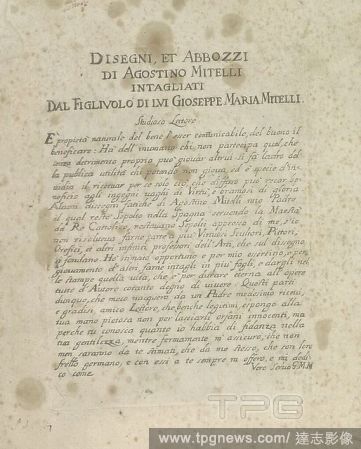 DISEGNI, ET ABBOZZI
DI AGOSTINO MITELLI
INTAGLIATI
DAL FIGLIVOLO DI LVI GIOSEPPE MARIA MITELLI.
Studioso Lettore
È propietà naturale del bene l'esser comunicabile, del buono il
beneficare: Hà dell' inumano chi non partecipa quel, che
senza detrimento proprio può giovar altrui
la publica utilità chi potendo non giova, ed è spezie d'in-
vidia il riserbar per se solo ciò, che diffuso può recar be-
neficio agli ingegni vaghi di Virtù, e bramosi di gloria.
Alcuni disegni fatiche di Agostino Mitelli mio Padre
il qual restò sepolto nella Spagna servendo la Maestà
del Rè Cattolico, restavano sepolti appresso di me, s'io
non risolveva farne parte a più Virtuosi Scultori, Pittori,
Orefici, et altri infiniti professori dell'Arti, che sul disegno
si fondano. Hò stimato opportuno e per mio esercitio, e per
giovamento d'altri farne intagli in più fogli, e dargli alle
stampe quella vita, che può restare eterna all' opere
tutte d'Autore cotanto degno di vivere. Questi parti
dunque, che meco nacquero da un Padre medesimo ricevi,
e gradisci, amico Lettore, che benche legitimi, espongo alla
tua mano pietosa non per lasciarli orfani innocenti, mà
perche tù conosca quanto io habbia di fidanza nella
tua gentilezza, mentre fermamente m'assicuro, che non
men saranno da te stimati, che da me stesso, che son loro
fratello germano, e con essi a te sempre m'offero, e mi dedi-
co come. Vero Servo G.M.M.
TPG
www.tpgnews.com / 達志影像